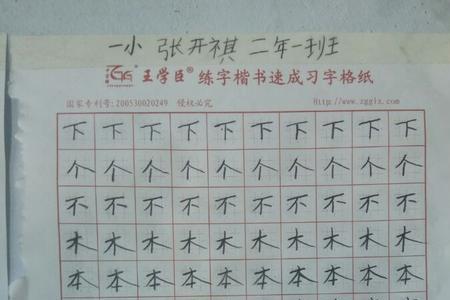 一小 张开祺 二年一班
王学臣® 练字楷书速成习字格纸
国家专利号:200530020249 侵权必究 Http://www.zggjx.com/
下 下 下 下 下 下 下 下 下 下
个 个 个 个 个 个 个 个 个 个
不 不 不 不 不 不 不 不 不 不
木 木 木 木 木 木 木 木 木 木
本 本 本 本 本 本 本 本 本 本